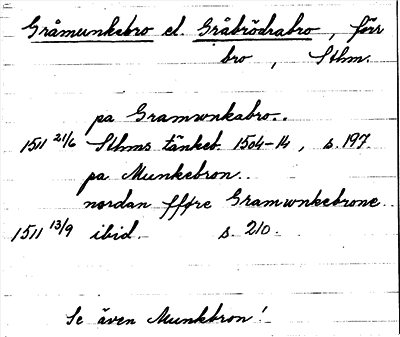 Gråmunkebro el. Gråbrödrabro, förr
bro, Sthm.
pa Gramwnkabro..
1511 21/6 Sthms tänkeb. 1504-14, s. 197.
pa Munkebron..
nordan fföre Gramwnkebrone..
1511 13/9 ibid. s. 210.
Se även Munkbron!